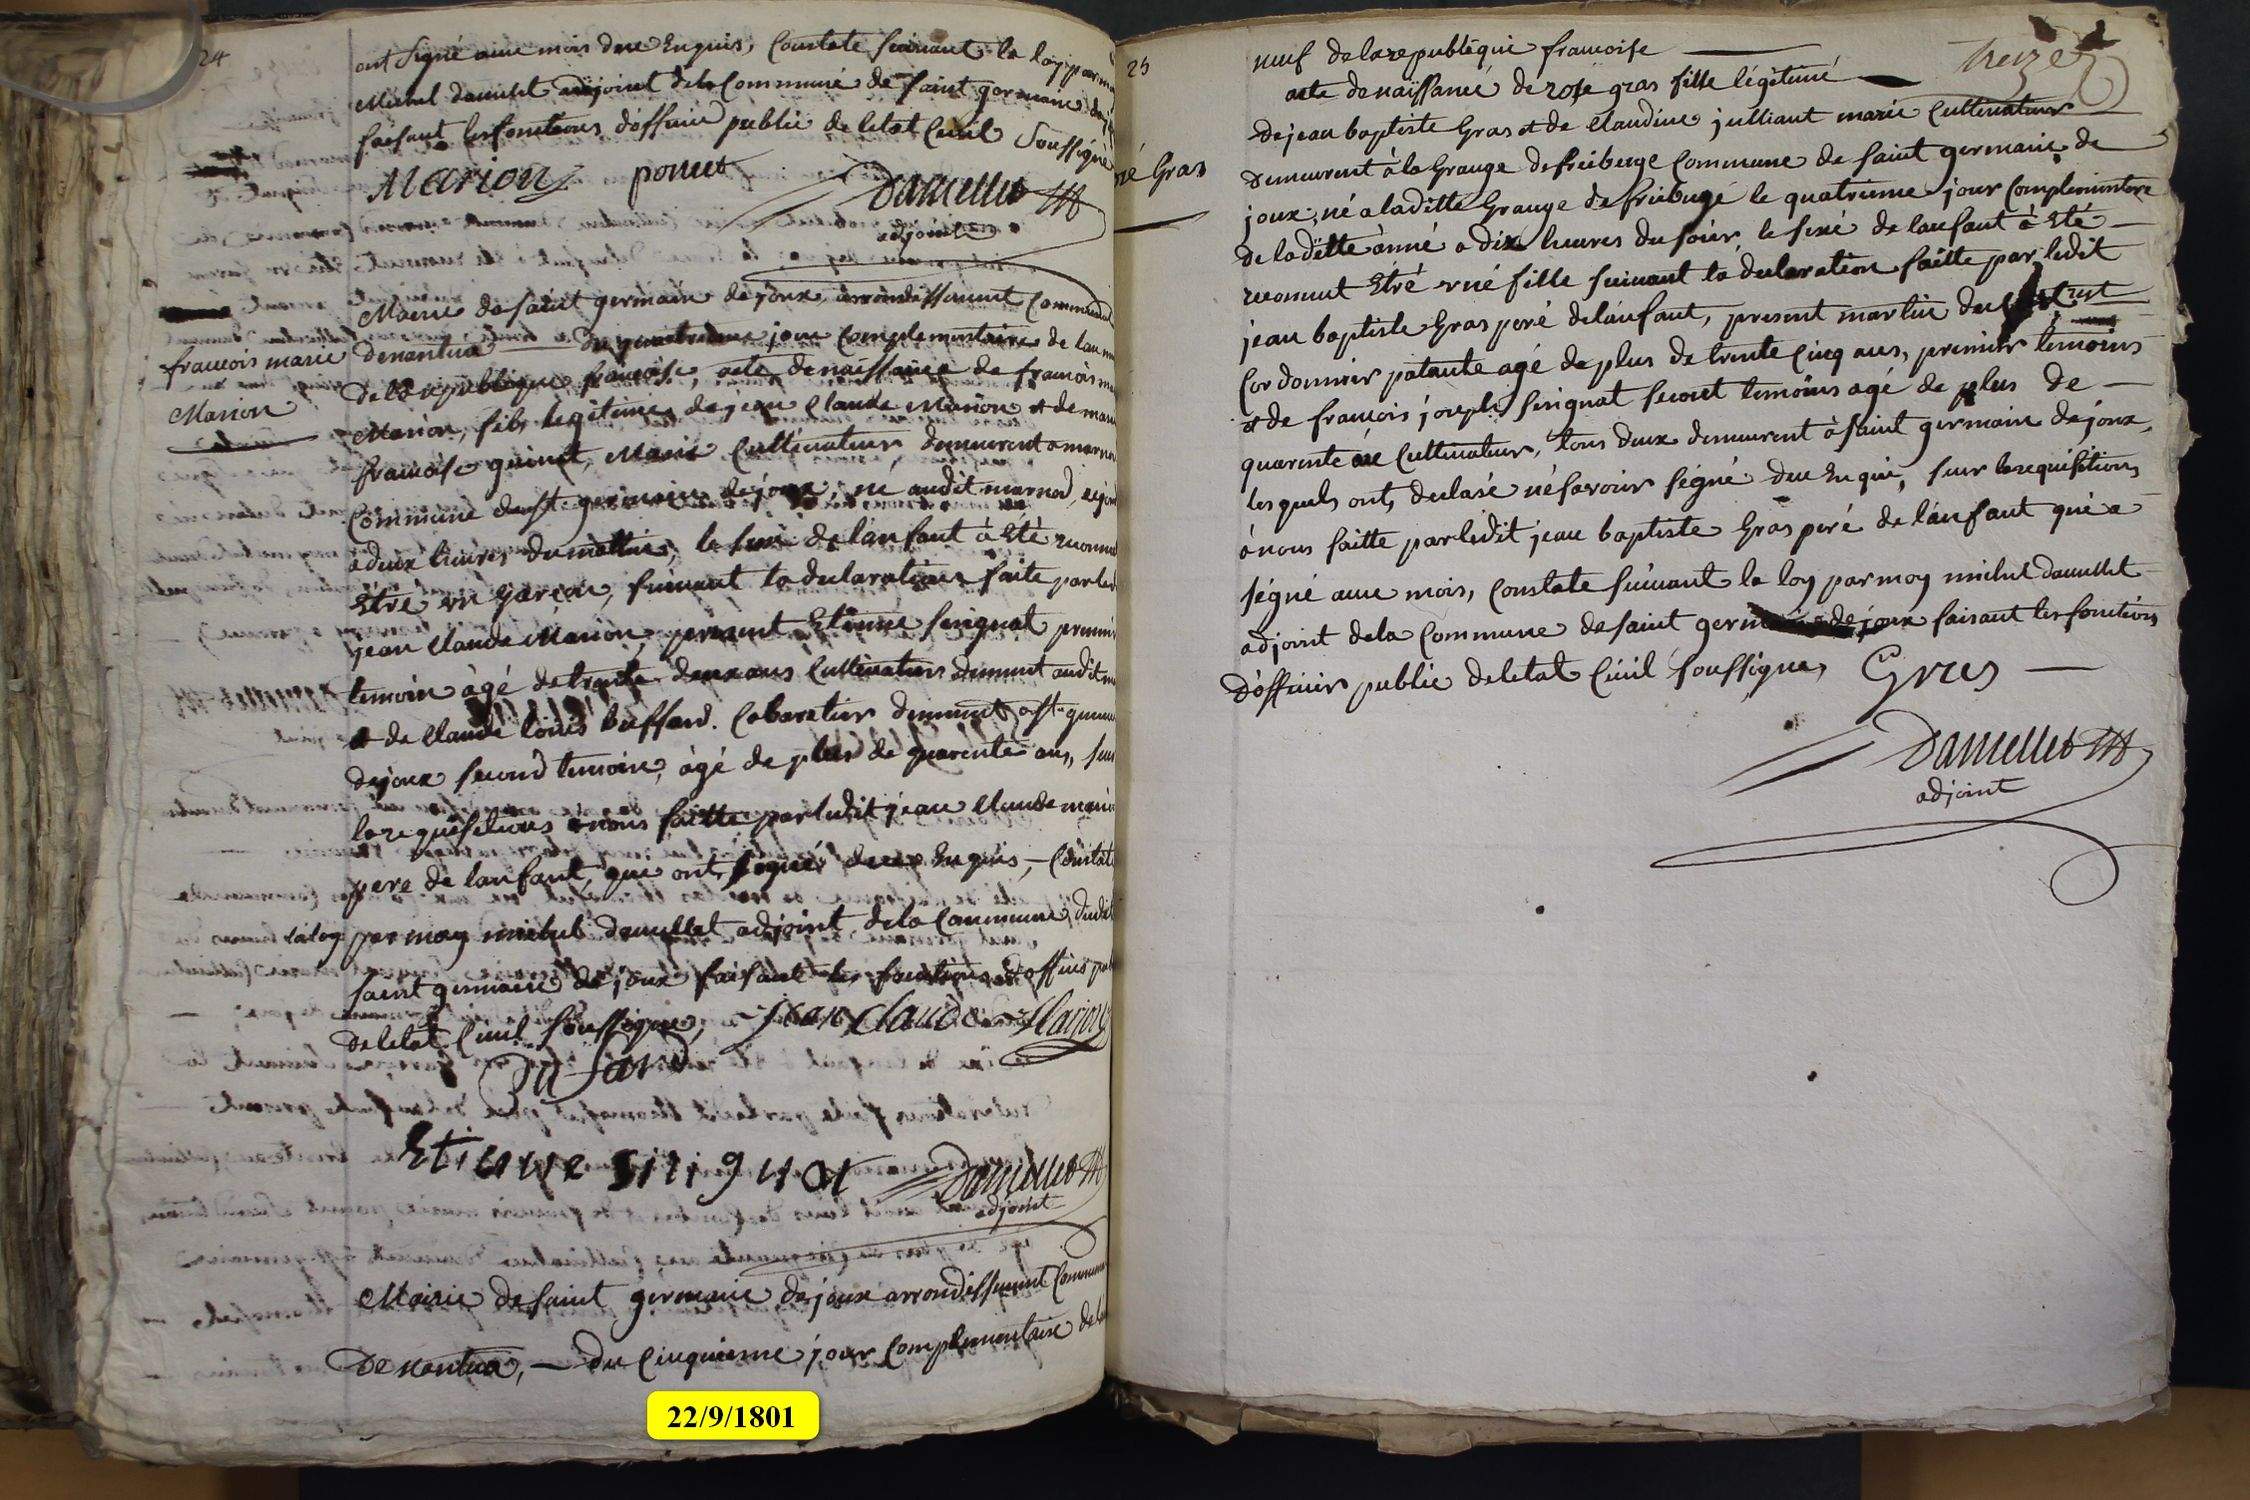 24
ont signé avec mois due Enquis, Constate suivant la loy par
Michel daniellet adjoint dela Commune de saint germain de
faisant les fonctions d'officié public de letat Civil Soussigné
Marion ponnet
Daniellet
adjoint
Mairie de saint germain de joux arrondissement Communal
francois marie
Marion
denantua du quatrieme jour Complementaire de lan
De la republique francoise, acte denaissance de francois
Marion, fils legitime de jean Claude Marion et de
francoise quinet, Marié Cultivateur, demeurent a
Commune de st germain de joux, né audit marnod,
a deux heures dumattin, le sexe de l'anfant à été reconnu
Etre un garçon, suivant la declaration faite par
jean Claude Marion, present Etienne sirignat premier
temoin âgé de trente deux ans Cultivateur dement audit
et de Claude louis buffard. Cabaretier dement a st germain
dejoux second temoin, âgé de plus de quarente ans, sur
la requisitions a nous faitte par ledit jean Claude
pere de lanfant, que ont signés de ce Enquis, - Constate
laloy par moy michel daniellet adjoint dela Commune dudit
saint germain de joux faisant les fonctions d'officié
de letat Civil soussigne, jean claude Marion
Bufard
Etienne sirignat
Daniellet
adjoint
Mairie de saint germain de joux arrondissement Communal
De nantua, - du Cinquieme jour Complementaire de
22/9/1801
25
neuf de la republique francoise
Treize
acte denaissance de rose gras fille légitime
dejean baptiste Gras et de Claudine julliant marié Cultivateur
Gras
Demeurent à la Grange defriebuge Commune de saint germain de
joux, né a laditte Grange de friebuge le quatrieme jour Complementere
de la ditte anné a dix heures du soir, le sexe de lanfant à été
reconnut Etre une fille suivant la declaration faitte par ledit
jean baptiste Gras peré de lánfant, present martin
Cordonnier patante agé de plus de trente Cinq ans, premier temoins
et de francois joseph sirignat second temoins agé de plus de
quarente Cultivateur, tous deux demeurent à saint germain dejoux,
les quels ont declaré né savoir ségné due Enquis, sur la requisitions
à nous faitte par ledit jean baptiste Gras peré de lánfant que a
ségné avec mois, Constate suivant la loy par moy michel daniellet
adjoint dela Commune de saint germain dejoux faisant les fonctions
D'officier public de letat Civil soussigne, Gras
Daniellet
adjoint